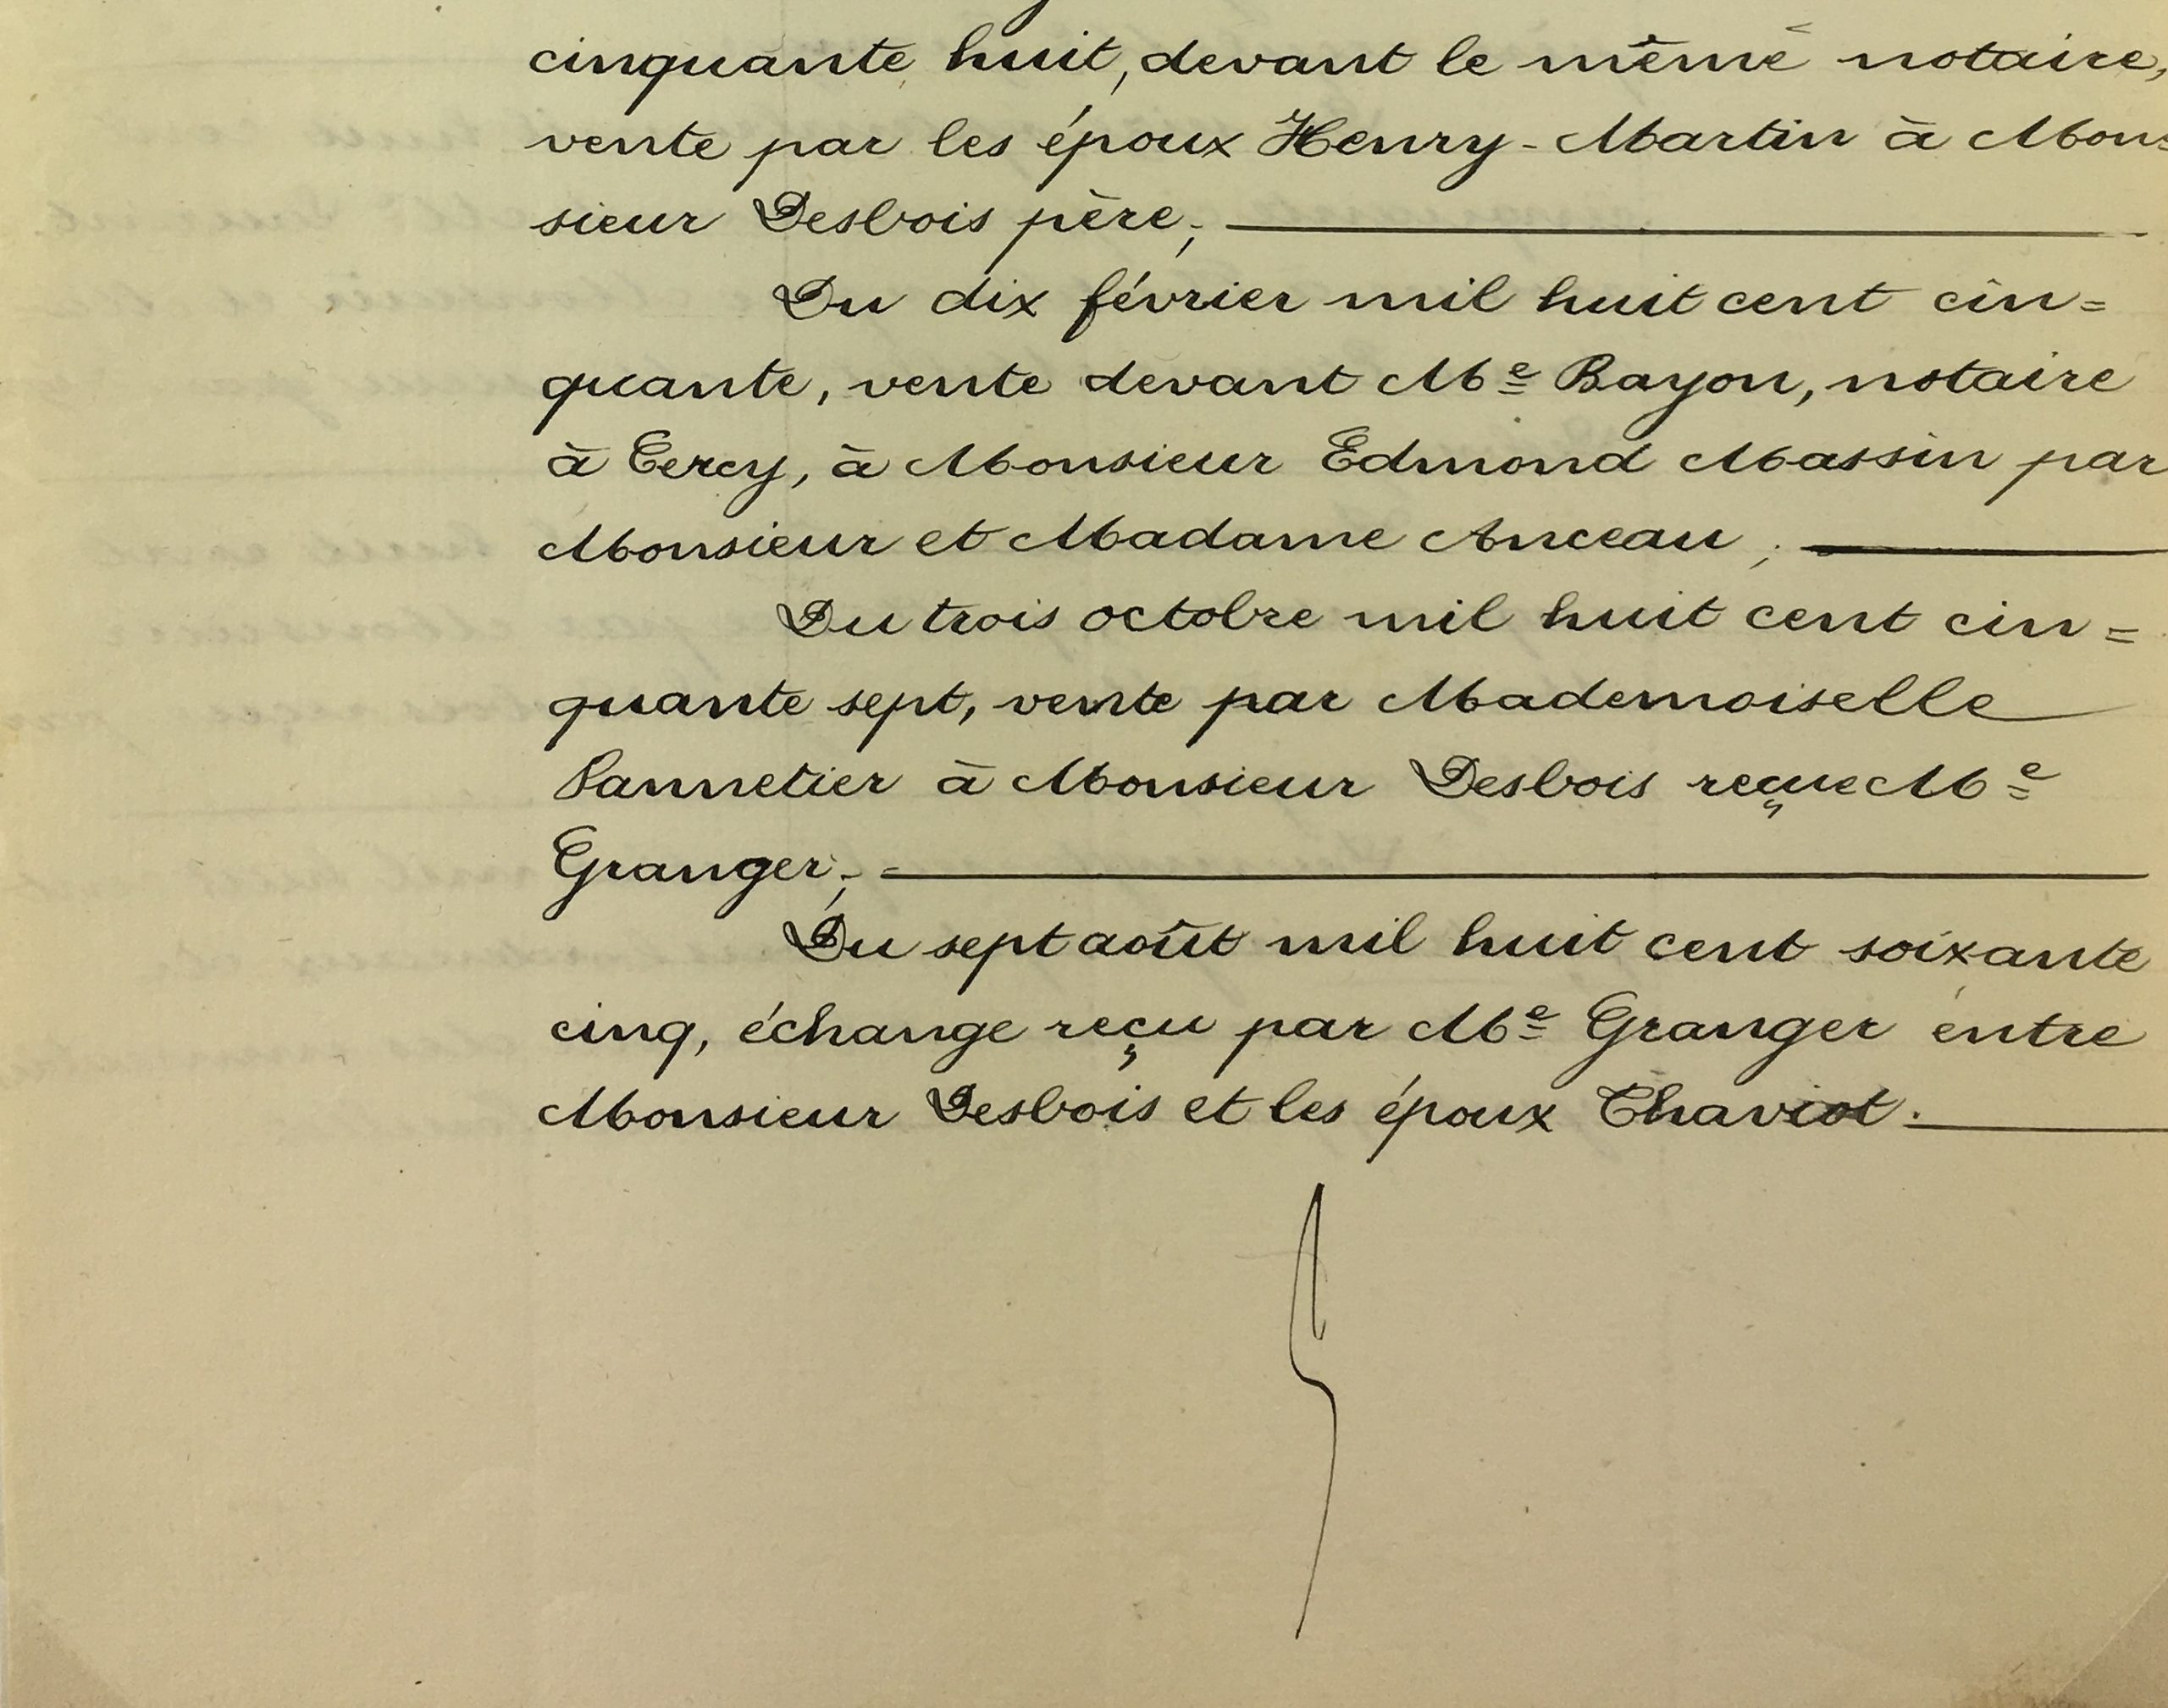 cinquante huit, devant le même notaire,
vente par les époux Henry-Martin à Mon=
sieur Desbois père;
Du dix février mil huit cent cin=
quante, vente devant Me Rayon, notaire
à Cercy, à Monsieur Edmond Massin par
Monsieur et Madame Anceau;
Du trois octobre mil huit cent cin=
quante sept, vente par Mademoiselle
Pannetier à Monsieur Desbois reçue Me
Granger;
Du sept août mil huit cent soixante
cinq, échange reçu par Me Granger entre
Monsieur Desbois et les époux Chaviot.